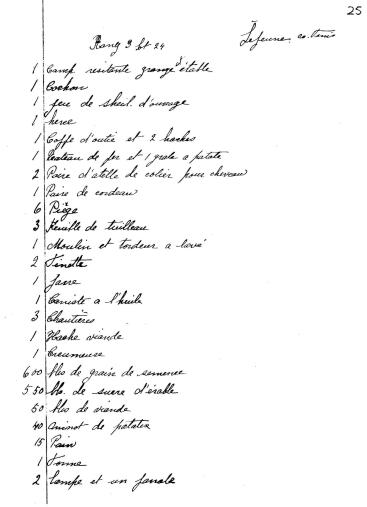 25
Rang 3 lot 24
Lejeune
1 Camp residante grange d'étable
1 Cochon
1 jeu de d'ouvrage
1 herce
1 Coffe d'outie et 2 haches
1 Rateau de fer et 1 grate a patate
2 Paire d'atelle de colier pour chevau
1 Paire de cordeau
6 Piège
3 Feuille de tuilleau
1 Moulin et tordeur a lavé
2 Tinette
1 Jarre
1 Caniste a l'huile
3 Chautières
1 Hache viande
1 Creumeuse
600 lbs de grain de semence
550 lbs. de sucre d'érable
50 lbs de viande
40 minot de patates
15 Pain
1 Tonne
2 Lampe et un fanale